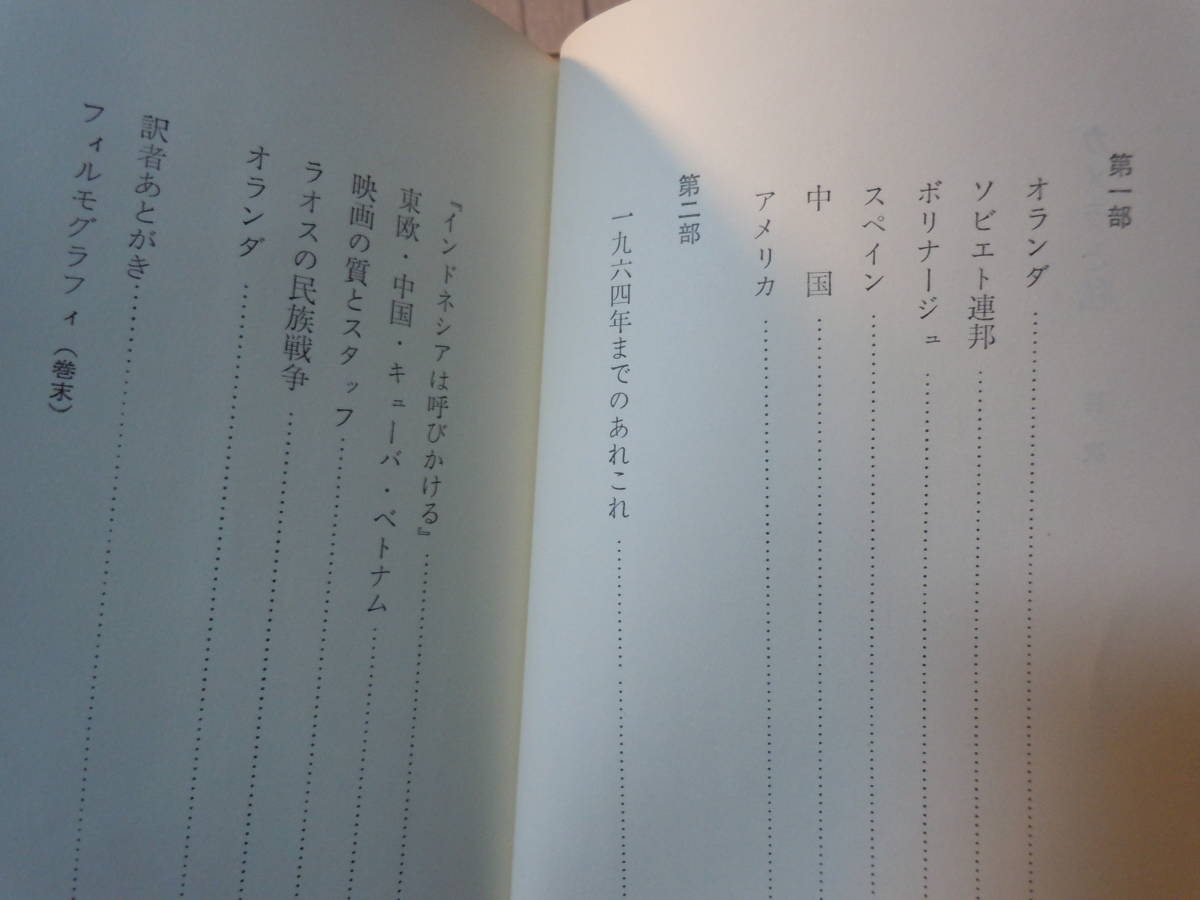 第一部
オランダ……………………
ソビエト連邦……………………
ボリナージュ……………………
スペイン……………………
中　国……………………
アメリカ……………………
第二部
一九六四年までのあれこれ……………………
『インドネシアは呼びかける』……………………
東欧・中国・キューバ・ベトナム……………………
映画の質とスタッフ……………………
ラオスの民族戦争……………………
オランダ……………………
訳者あとがき……………………
フィルモグラフィ（巻末）